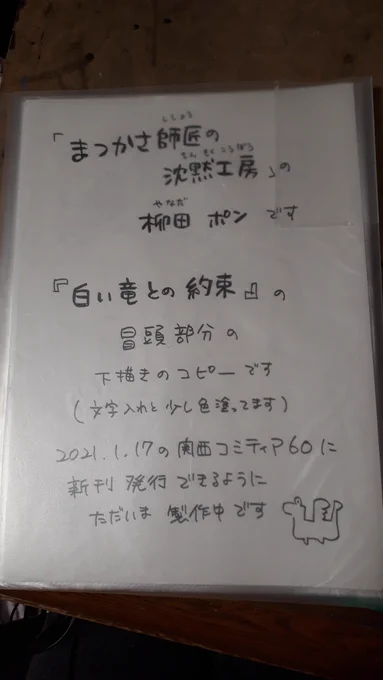 ししょう
「まつかさ師匠の
ちんもくこうぼう
沈黙工房」の
やなだ
柳田 ポン です
『白い竜との約束』の
冒頭部分の
下描きのコピーです
(文字入れと少し色塗ってます)
2021.1.17の関西コミティア60に
新刊 発行できるように
ただいま 製作中です